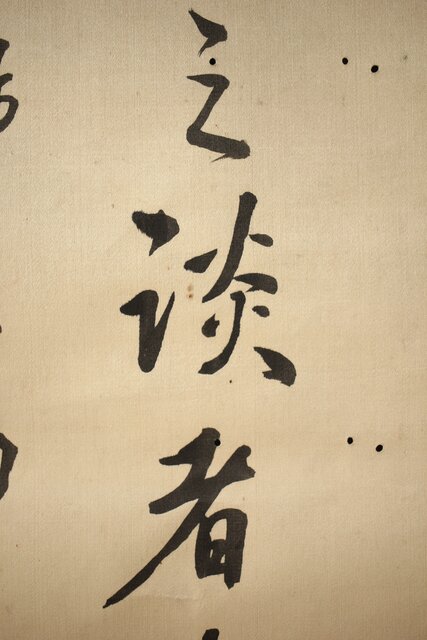 之談者